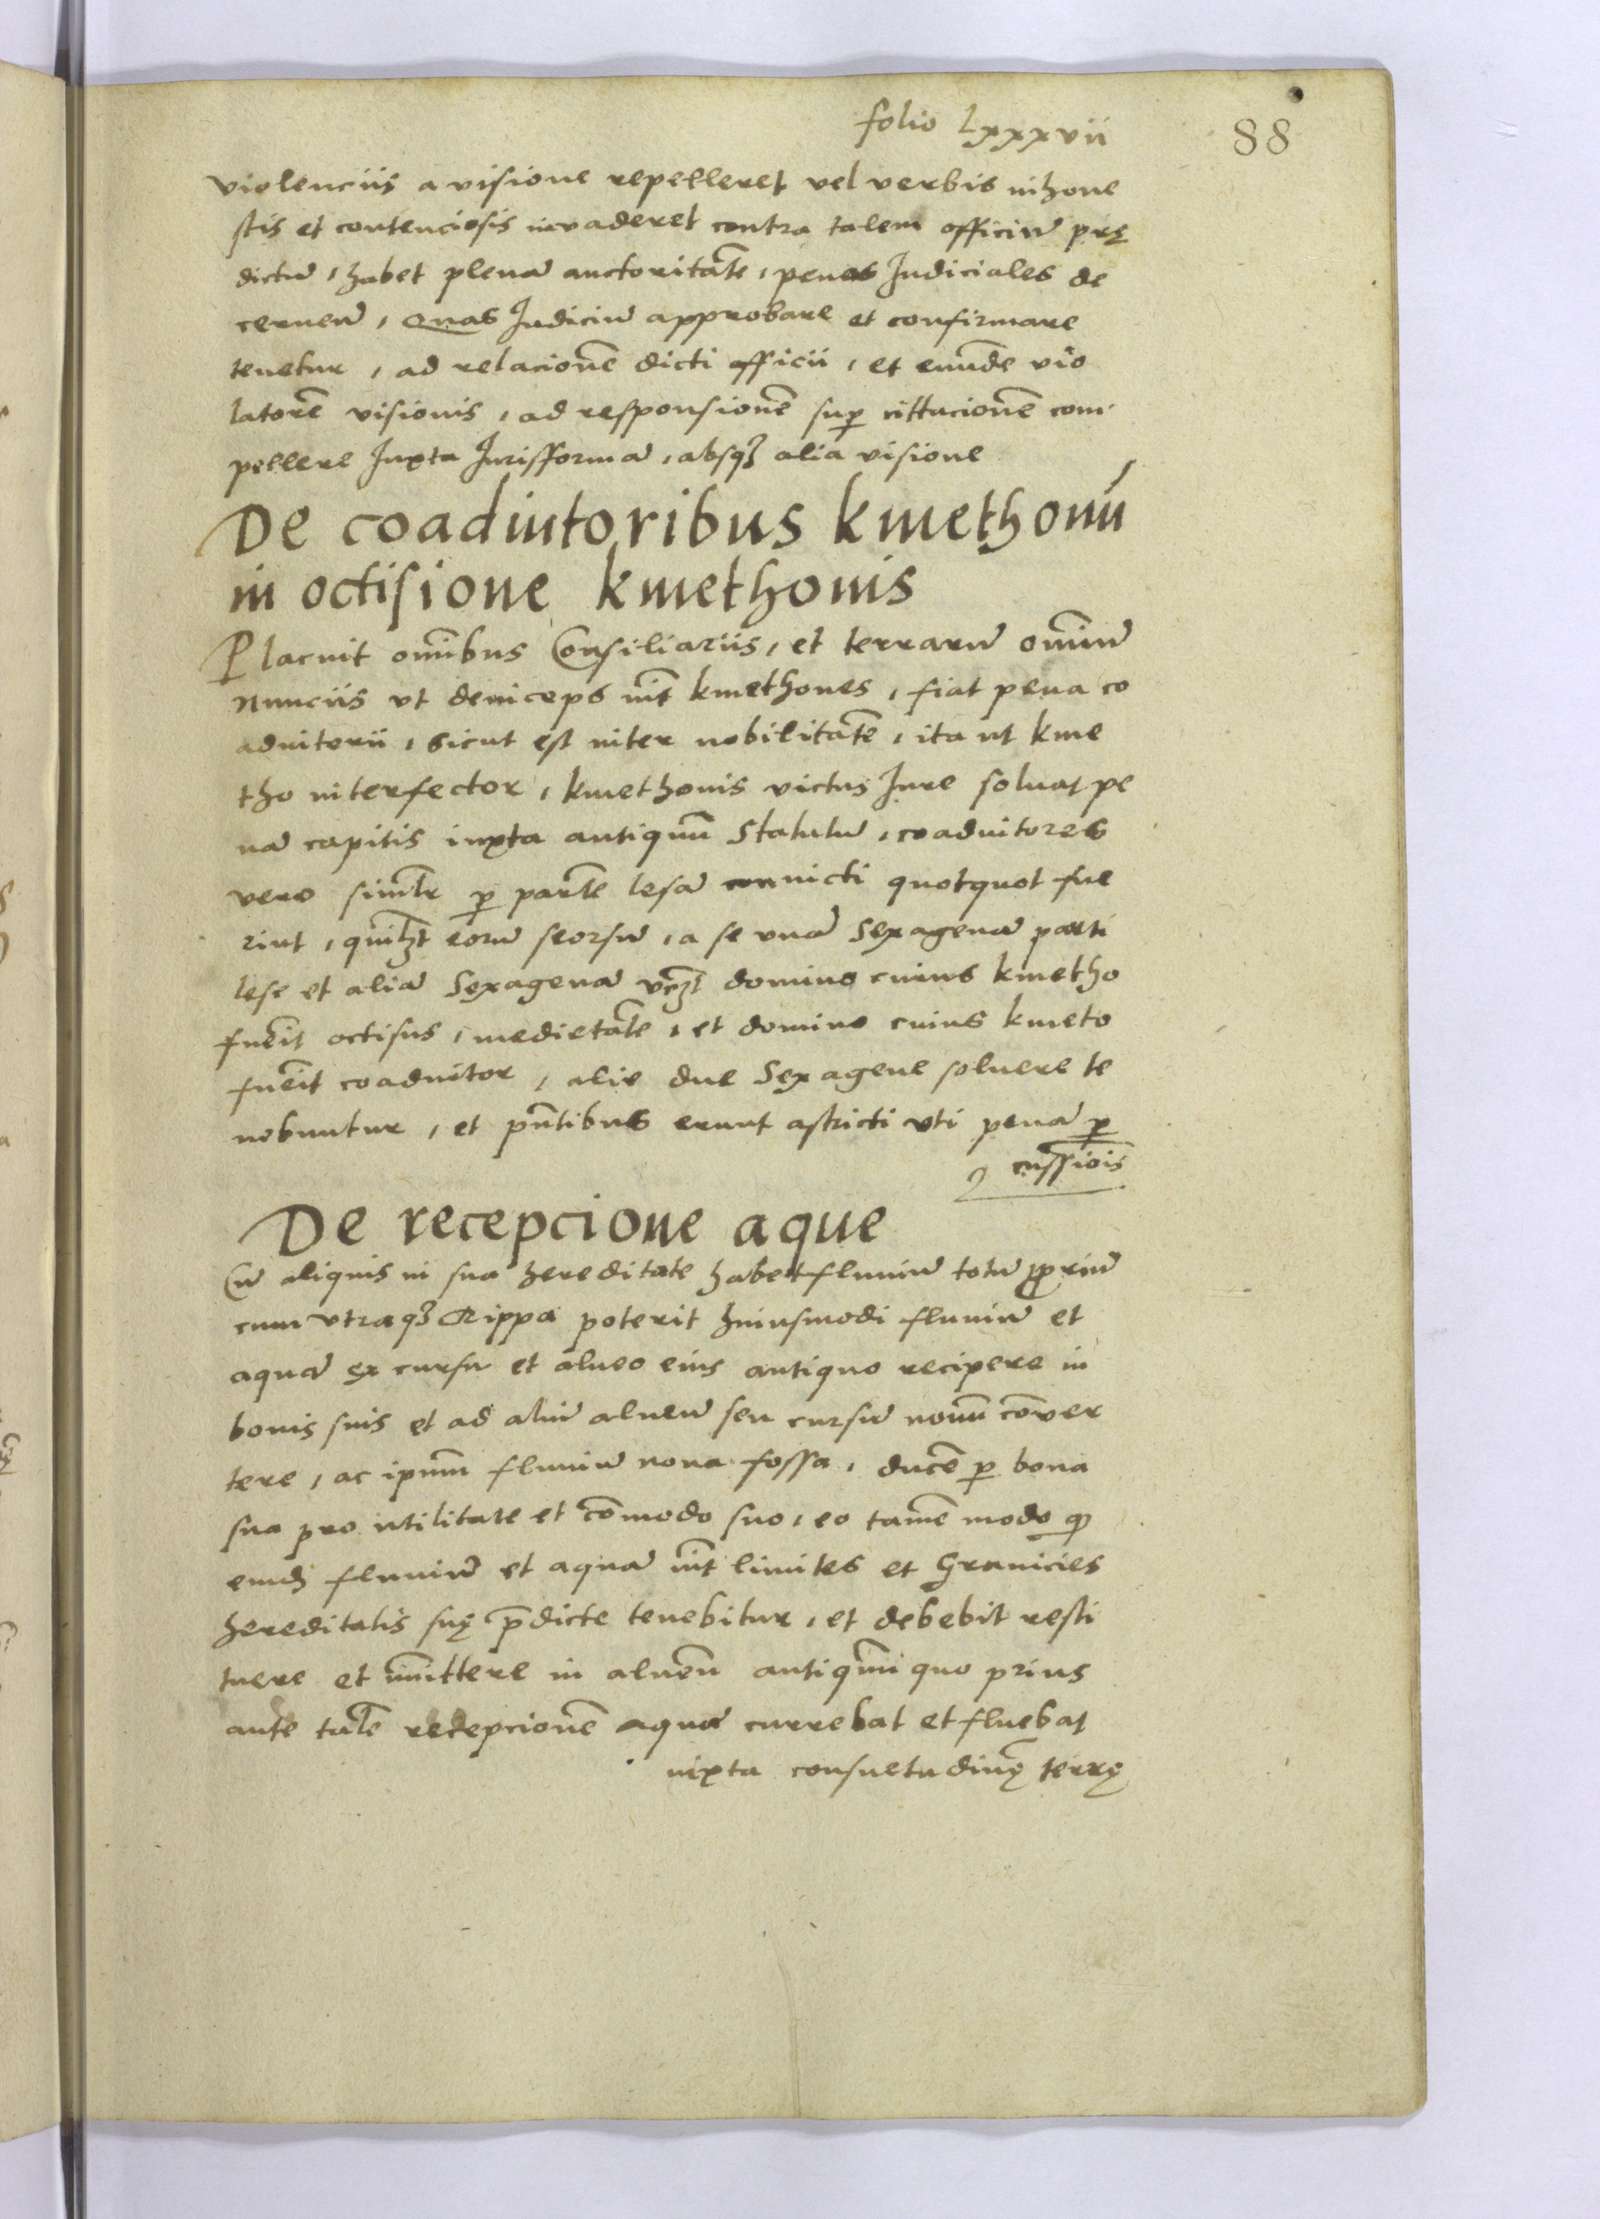 folio Lxxxvii
88
violenciis a visione repelleret vel verbis inhone
stis et contenciosis invaderet contra talem officiū prę
dictū, habet plenā auctoritātē, penas Judiciales de
cernēn̄, Quas Judiciū approbare et confirmare
tenetur, ad relacionē dicti officii, et eundē vio
latorē visionis, ad responsionē sup cittacionē com
pellere Juxta Jurisformā, absq3 alia visione
De coadiutoribus kmethonū
in octisione kmethonis
Placuit om̄ibus Consiliariis, et terrarū om̄iū
Nunciis vt deinceps int̄ kmethones, fiat pena co
adiutorii, sicut est inter nobilitātē, ita ut kme
tho interfector, kmethonis victus Jure soluat pe
nā capitis iuxta antiquū Statutū, coadiutores
vero simlr̄ p partē lesā convicti quotquot fue
rint, quilꝫt eorū seorsū, a se vnā Sexagenā parti
lese et aliā Sexagenā vꝫt domino cuius kmetho
fuerit octisus, medietātē, et domino cuius kmeto
fuerit coadiutor, alie due Sexagene soluere te
nebuntur, et pn̄tibus erunt astricti vti penā p
cussiois
De recepcione aque
Cū aliquis in sua hereditate habet fluviū totū propriū
cum vtraq3 Rippa poterit huiusmodi fluviū et
aquā ex cursu et alueo eius antiquo recipere in
bonis suis et ad aliū alueū seu cursū nouū cōver
tere, ac ipum̄ fluviū noua fossa, ducē p bona
sua pro utilitate et cōmodo suo, eo tamē modo q
eundꝫ fluviū et aquā int̄ limites et Granicies
hereditatis suę p̄dicte tenebitur, et debebit resti
tuere et im̄ittere in alueū antiquū quo prius
ante talē recepcionē aqua currebat et fluebat
iuxta consuetudinę terrę